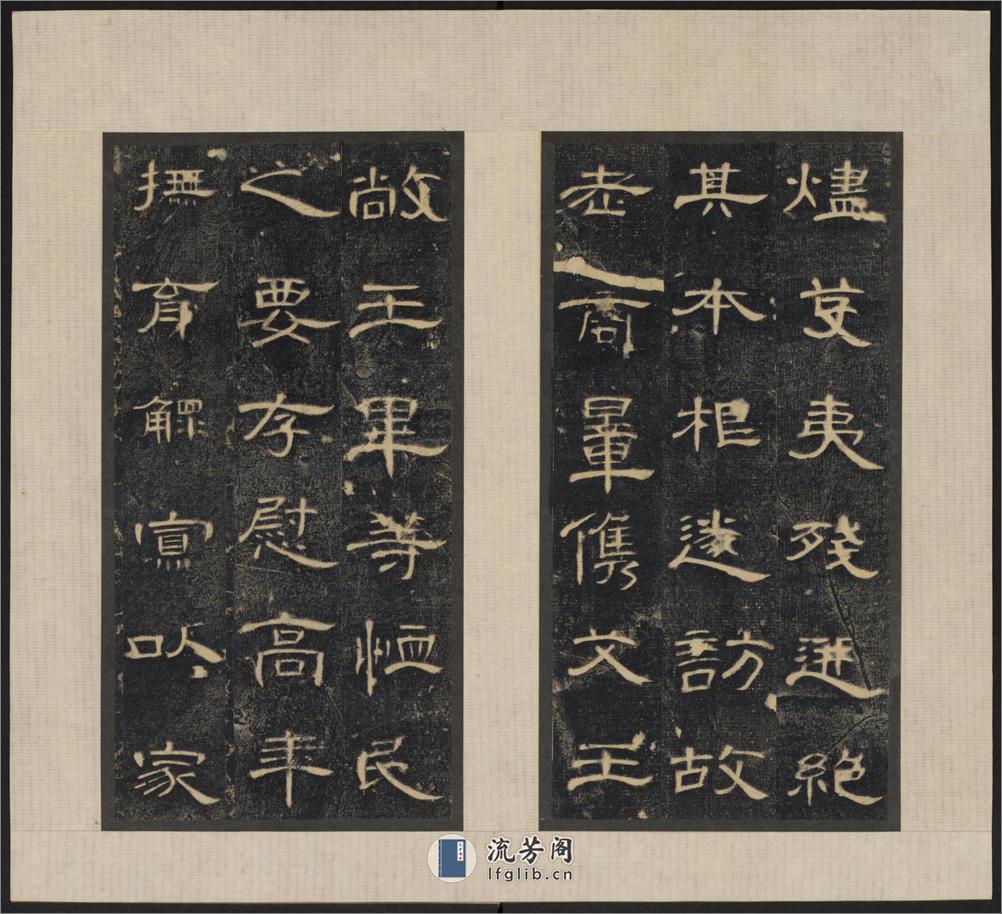 燼芟夷殘迸絕
其本根遂訪故
老商量儁艾王
敞王畢等恤民
之要存慰高年
撫育鰥寡以家
流芳阁
lfglib.cn